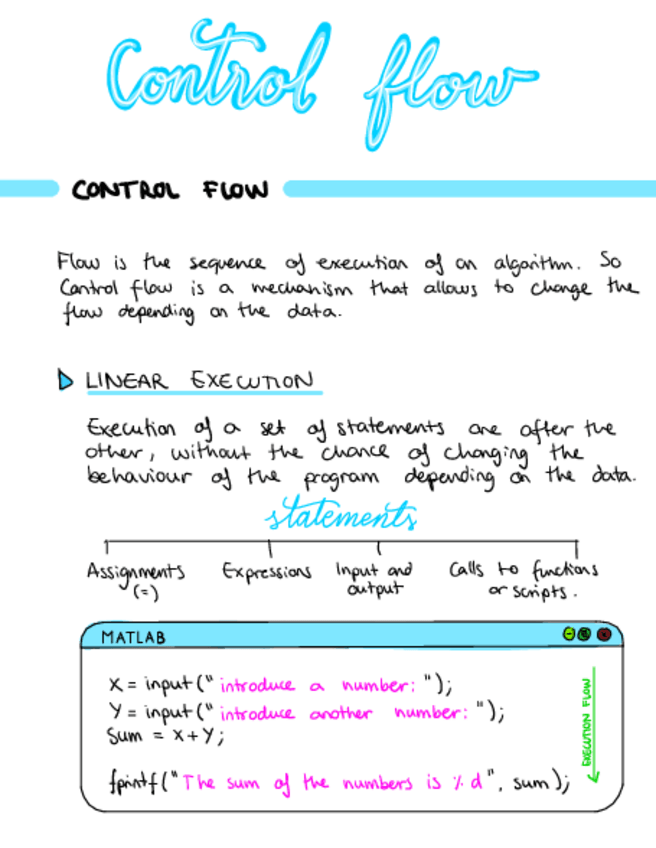 Control flow
CONTROL FLOW
Flow is the sequence of execution of an algorithm. So
Control flow is a mechanism that allows to change the
flow depending on the data.
LINEAR EXECUTION
Execution of a set of statements one after the
other, without the chance of changing the
behaviour of the program depending on the data.
statements
Assignments
(=)
Expressions
Input and
output
Calls to functions
or scripts.
MATLAB
X = input("introduce a number: ");
Y = input("introduce another number: ");
Sum = x+y;
fprintf("The sum of the numbers is %d", sum);
EXECUTION FLOW